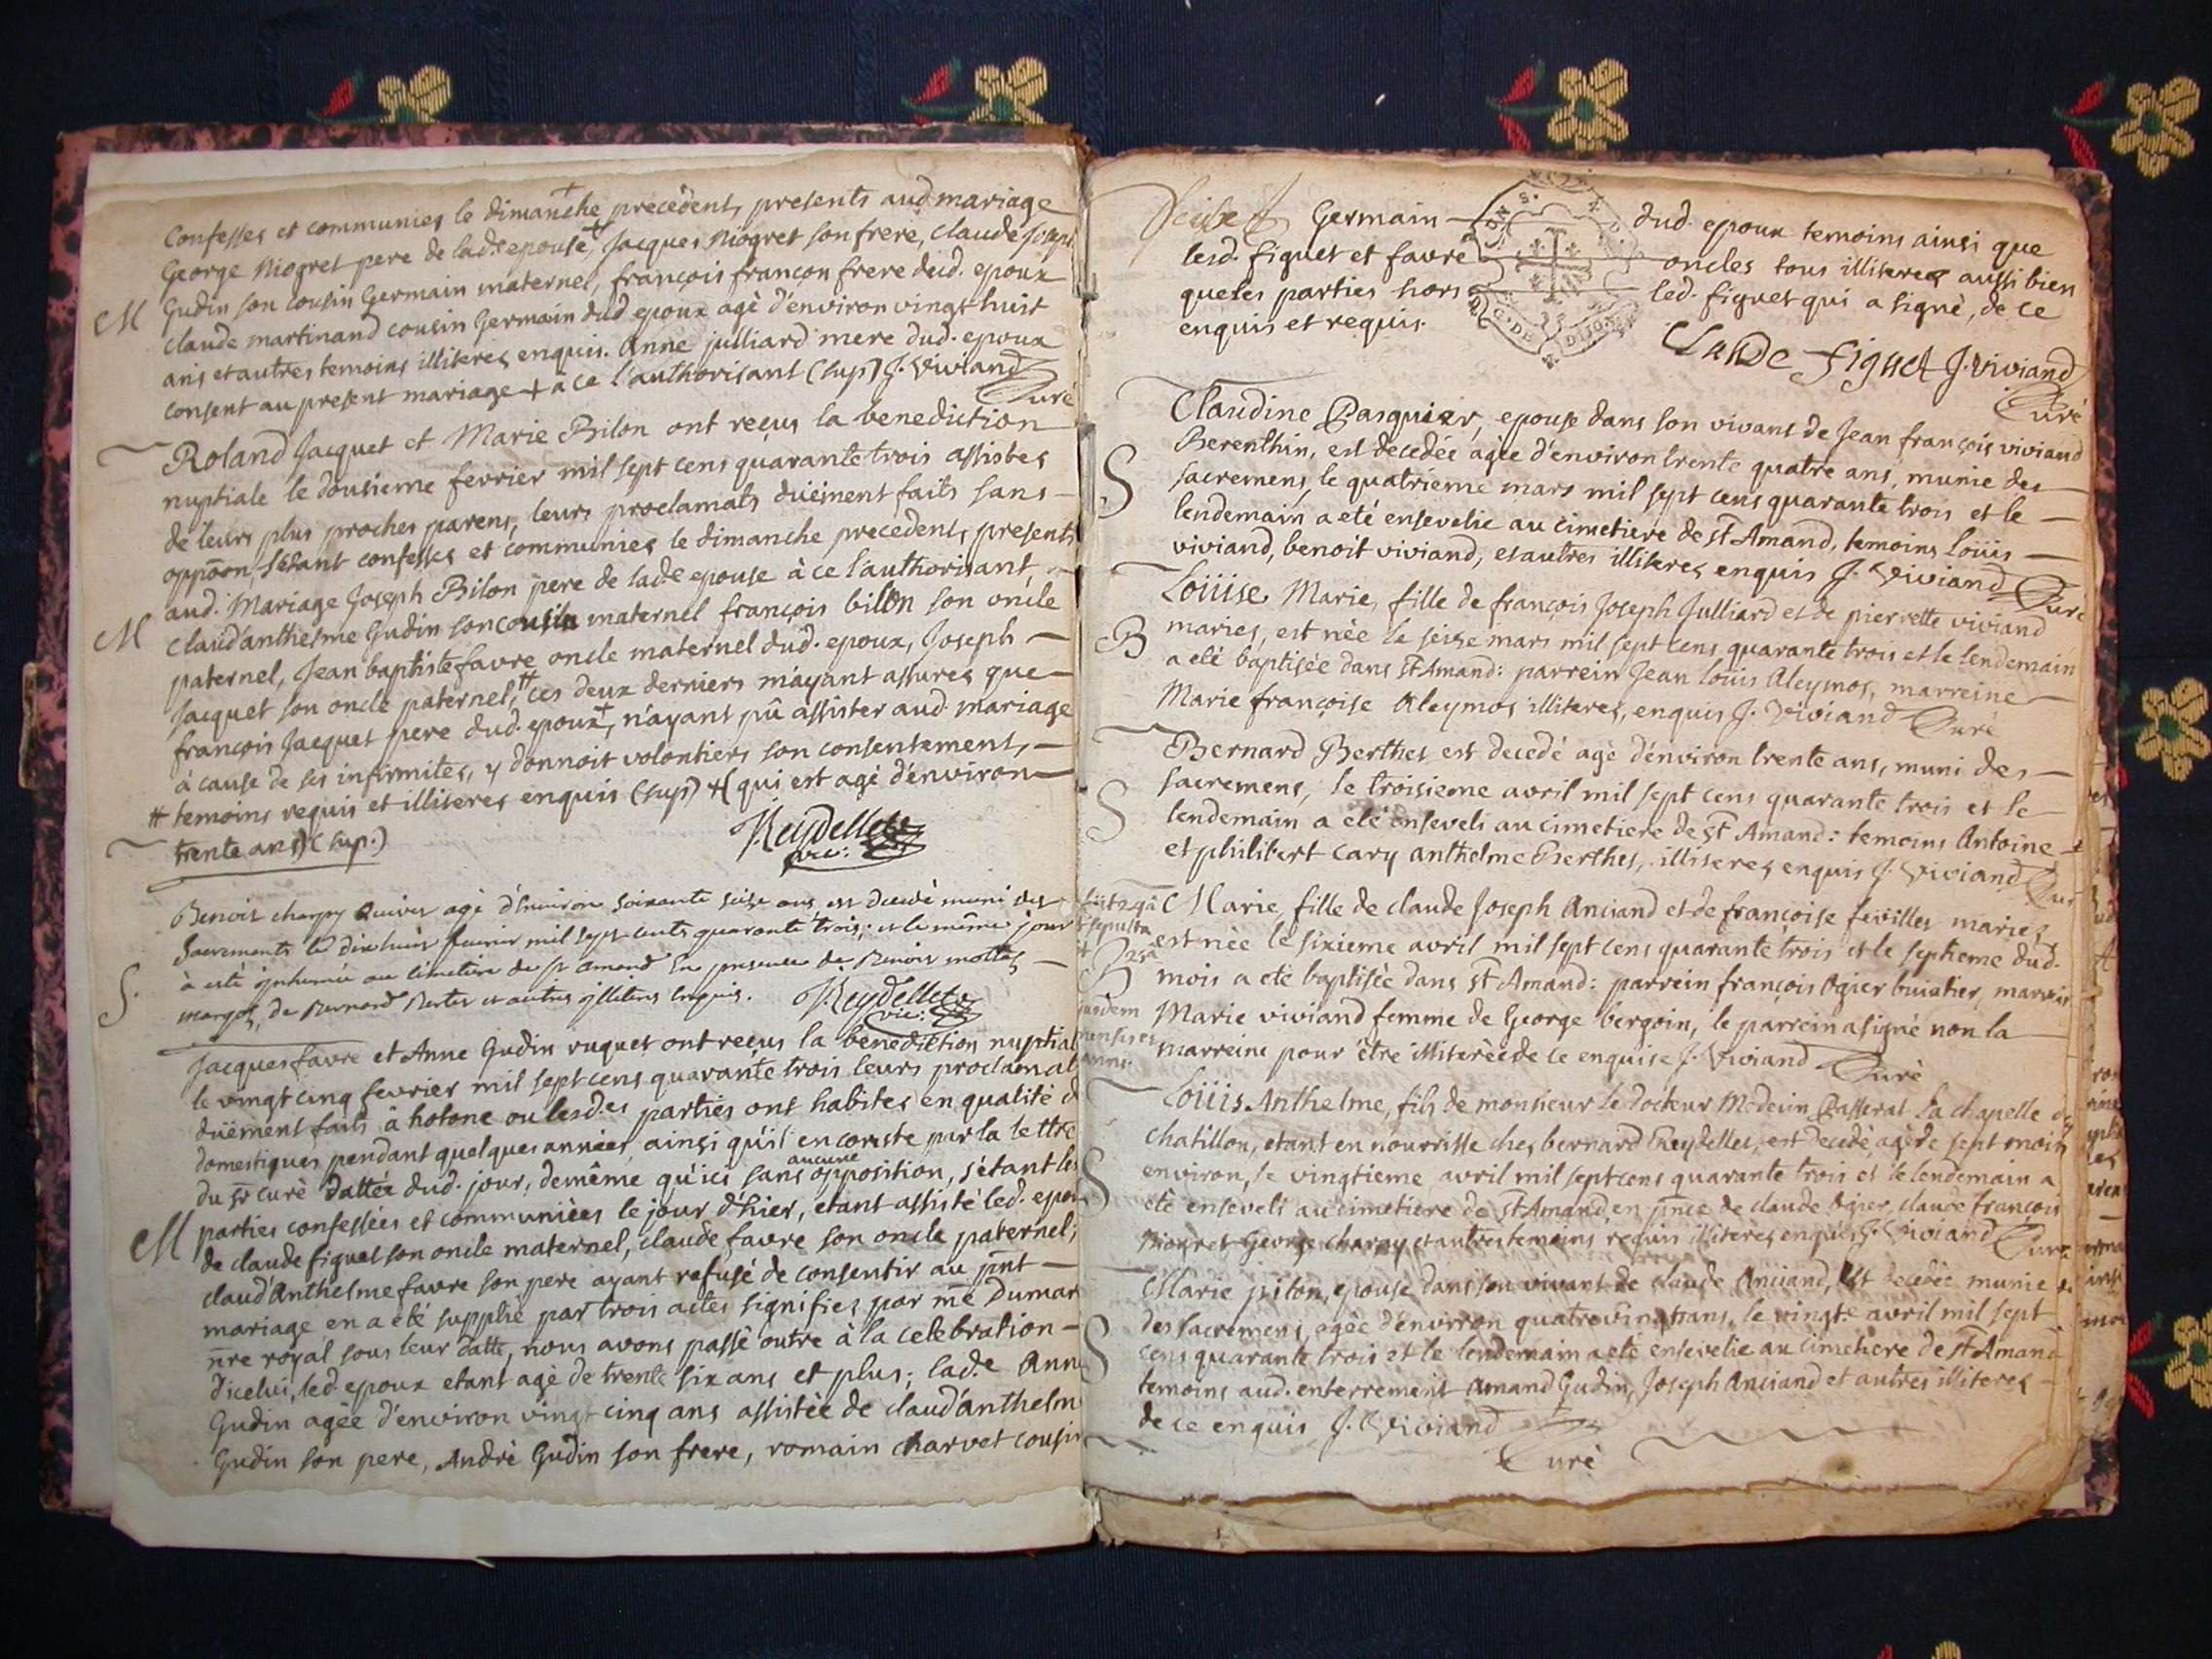 Confesses et communies le dimanche precedent, presents aud mariage
George Niogret pere de lade epouse, Jacques Niogret son frere, claude Joseph
Gudin son cousin Germain maternel, françois françon frere dud. epoux
M
claude martinand cousin Germain dud epoux agè d'environ vingt huit
ans et autres temoins illiteres enquis. Anne julliard mere dud. epoux
consent au present mariage + a ce l'authorisant (sup) J. Viviand
Curé
Roland Jacquet et Marie Bilon ont reçus la benediction
nuptiale le dousieme fevrier mil sept cens quarante trois assistes
de leurs plus proches parens, leurs proclamats düement faits sans
oppõon, s'etant confesses et communies le dimanche precedent, presents
aud. Mariage Joseph Bilon pere de lade epouse à ce l'authorisant,
M
claud'anthelme Gudin son cousin maternel françois billon son oncle
paternel, Jean baptiste favre oncle maternel dud. epoux, Joseph
Jacquet son oncle paternel, # ces deux derniers m'ayant assures que
françois Jacquet pere dud. epoux +, n'ayant pû assister aud. mariage
à cause de ses infirmites, y donnoit volontiers son consentement,
# temoins requis et illiteres enquis (sup) + (qui est agè d'environ
trente ans) (sup.)
Reydellet
vic:
Benoit charpy agè d'environ soixante seise ans est decedè muni des
Sacrements le dix huit fevrier mil sept cents quarante trois; et le même jour
à eté inhumé au cimetiere de st amand En presence de Benoit mottet
S.
margot, de Bernard Bertet et autres illiteres enquis.
Reydellet
vic:
Jacques favre et Anne Gudin ruquet ont reçus la benediction nuptial
le vingt cinq fevrier mil sept cens quarante trois leurs proclamat
düement faits à hotone ou lesd.es parties ont habites en qualité d
domestiques pendant quelques années, ainsi qu'il en conste par la lettre
du sr curè dattée dud. jour, demême qu'ici sans aucune opposition, s'étant les
M
parties confessées et communiées le jour d'hier, etant assisté led. epou
de claude figuet son oncle maternel, claude favre son oncle paternel,
claud'Anthelme favre son pere ayant refusé de consentir au pnt
mariage en a eté supplié par trois actes signifies par me Dumar
nre royal sous leur datte, nous avons passé outre à la celebration
d'icelui, led. epoux etant agè de trente six ans et plus; lad.e Ann
Gudin agèe d'environ vingt cinq ans assistée de claud'anthelm
Gudin son pere, Andrè Gudin son frere, romain charvet cousin
Germain dud. epoux temoins ainsi que
lesd. figuet et favre oncles tous illiteres aussi bien
que les parties hors led. figuet qui a signè, de ce
enquis et requis.
G. DE DIJON
Claude Figuet J. Viviand
Curé
Claudine Pasquier, epouse dans son vivant de Jean françois viviand
Berenthin, est decedée agèe d'environ trente quatre ans, munie des
S
sacremens, le quatrieme mars mil sept cens quarante trois et le
lendemain a eté ensevelie au cimetiere de st Amand, temoins Loüis
viviand, benoit viviand, et autres illiteres enquis J. Viviand
Curé
Loüise Marie, fille de françois Joseph Julliard et de pierrette viviand
B
maries, est nèe le seise mars mil sept cens quarante trois et le lendemain
a eté baptisèe dans st Amand: parrein Jean Loüis Aleymos, marreine
Marie françoise Aleymos illiteres, enquis J. Viviand Curè
Bernard Berthet est decedé agè d'environ trente ans, muni des
S
sacremens, le troisieme avril mil sept cens quarante trois et le
lendemain a eté enseveli au cimetiere de st Amand: temoins Antoine
et philibert cary anthelme Berthet, illiteres enquis J. Viviand
Cur
Marie, fille de claude Joseph Anciand et de françoise fevilles maries,
est nèe le sixieme avril mil sept cens quarante trois et le septieme dud.
B
mois a eté baptisèe dans st Amand: parrein françois Ogier buiatier, marrein
Marie viviand femme de George bergoin, le parrein a signè non la
marreine pour être illiterèe de ce enquise J. Viviand Curè
Loüis Anthelme, fils de monsieur le docteur Medecin Passerat La chapelle de
chatillon, etant en nourrisse ches bernard Reydellet, est decedè, agè de sept mois
S
environ, le vingtieme avril mil sept cens quarante trois et le lendemain a
eté enseveli au cimetiere de st Amand, en pnce de claude Ogier, claude françois
Niogret George charpy et autres temoins requis illiteres enquis J. Viviand Curé
Marie pilon, epouse dans son vivant de claude Anciand, est decedée munie
des sacremens agèe d'environ quatre vingt ans, le vingt. avril mil sept
S
cens quarante trois et le lendemain a eté ensevelie au cimetiere de st Amand
temoins aud. enterrement Amand Gudin, Joseph Anciand et autres illiteres
de ce enquis J. Viviand
Curè